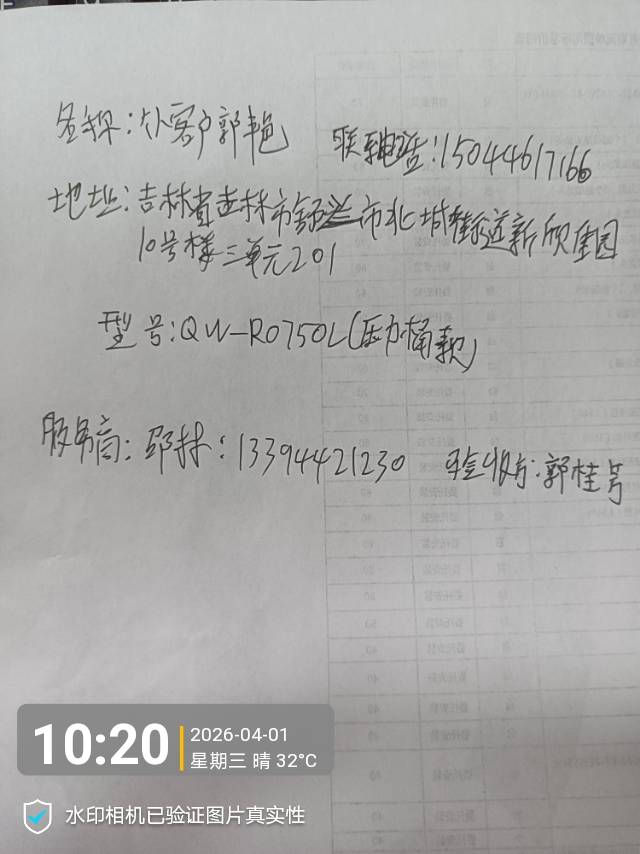 名称:小客户郭艳 联系电话:15044617166
地址:吉林省吉林市舒兰市北城街道新欣佳园
10号楼三单元201
型号:QW-R0750L(压力桶款)
服务商:邵林:13394421230 验收方:郭桂号
10:20
2026-04-01
星期三 晴 32°C
水印相机已验证图片真实性